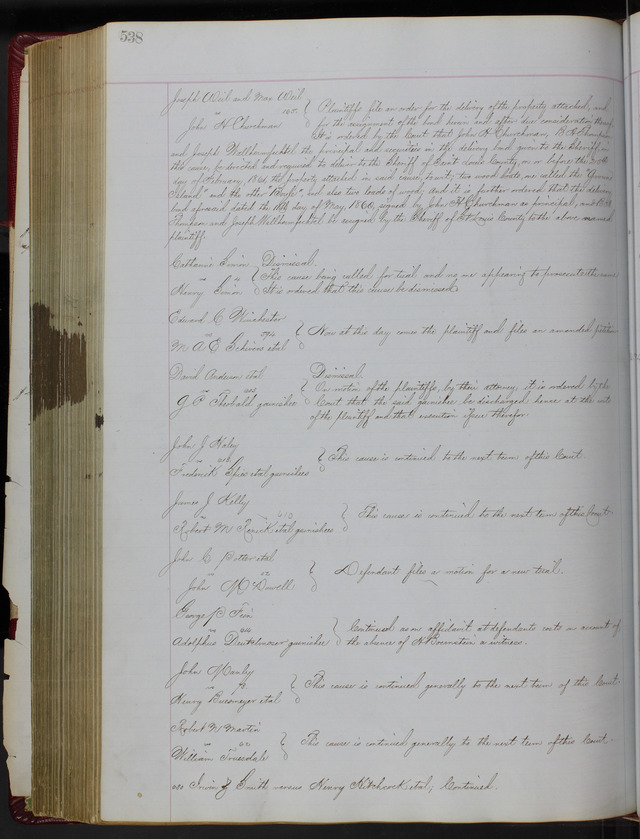 538
Joseph Weil and Max Weil
vs.
John H Churchman
Plaintiffs file an order for the delivery of the property attached, and
for the assignment of the bond herein and after due consideration thereof
It is ordered by the Court that John H Churchman,
and Joseph the principal and securities in the delivery bond given to the Sheriff in
this cause, be directed and required to deliver to the Sheriff of Saint Louis County, on or before the
day of February 1861, the property attached in said cause, to wit; two wood boats, one called the
Island" and the other "Boyle", and also two loads of wood; And it is further ordered that the delivery
bond aforesaid dated the day of May 1860, signed by John H Churchman as principal, and
and Joseph be assigned by the Sheriff of St Louis County to the above named
plaintiff.
Catharine Irwin
vs
Henry Irwin
Dismissal.
This cause being called for trial and no one appearing to prosecute the same
It is ordered that this cause be dismissed.
Edward C Winchester
vs
M A E et al
Now at this day comes the plaintiff and files an amended petition
David Anderson et al
vs
J C Theobald garnishee
Dismissal.
On motion of the plaintiffs, by their attorney, it is ordered by the
Court that the said garnishee be discharged hence at the costs
of the plaintiff and that execution issue therefor.
John J Haley
vs
Frederick et al garnishees
This cause is continued to the next term of this Court.
James J Kelly
vs
Robert M Renick et al garnishees
This cause is continued to the next term of this Court.
John C Potter et al
vs
John McDowell
Defendant files a motion for a new trial.
George P
vs
Adolphus garnishee
Continued as on affidavit at defendants costs on account of
the absence of a witness.
John Manly
vs
Henry et al
This cause is continued generally to the next term of this Court.
Robert W Martin
vs
William Truesdale
This cause is continued generally to the next term of this Court.
Irwin J Smith versus Henry Hitchcock et al, Continued.